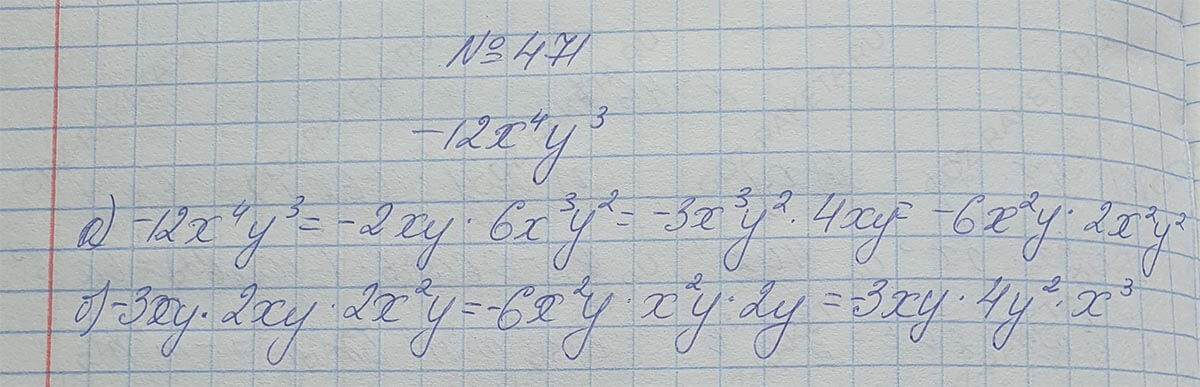 № 471
-12x⁴y³
а) -12x⁴y³ = -2xy · 6x³y² = -3x³y² · 4xy = -6x²y · 2x²y²
б) -3xy · 2xy · 2x²y = -6x²y · x²y · 2y = -3xy · 4y² · x³